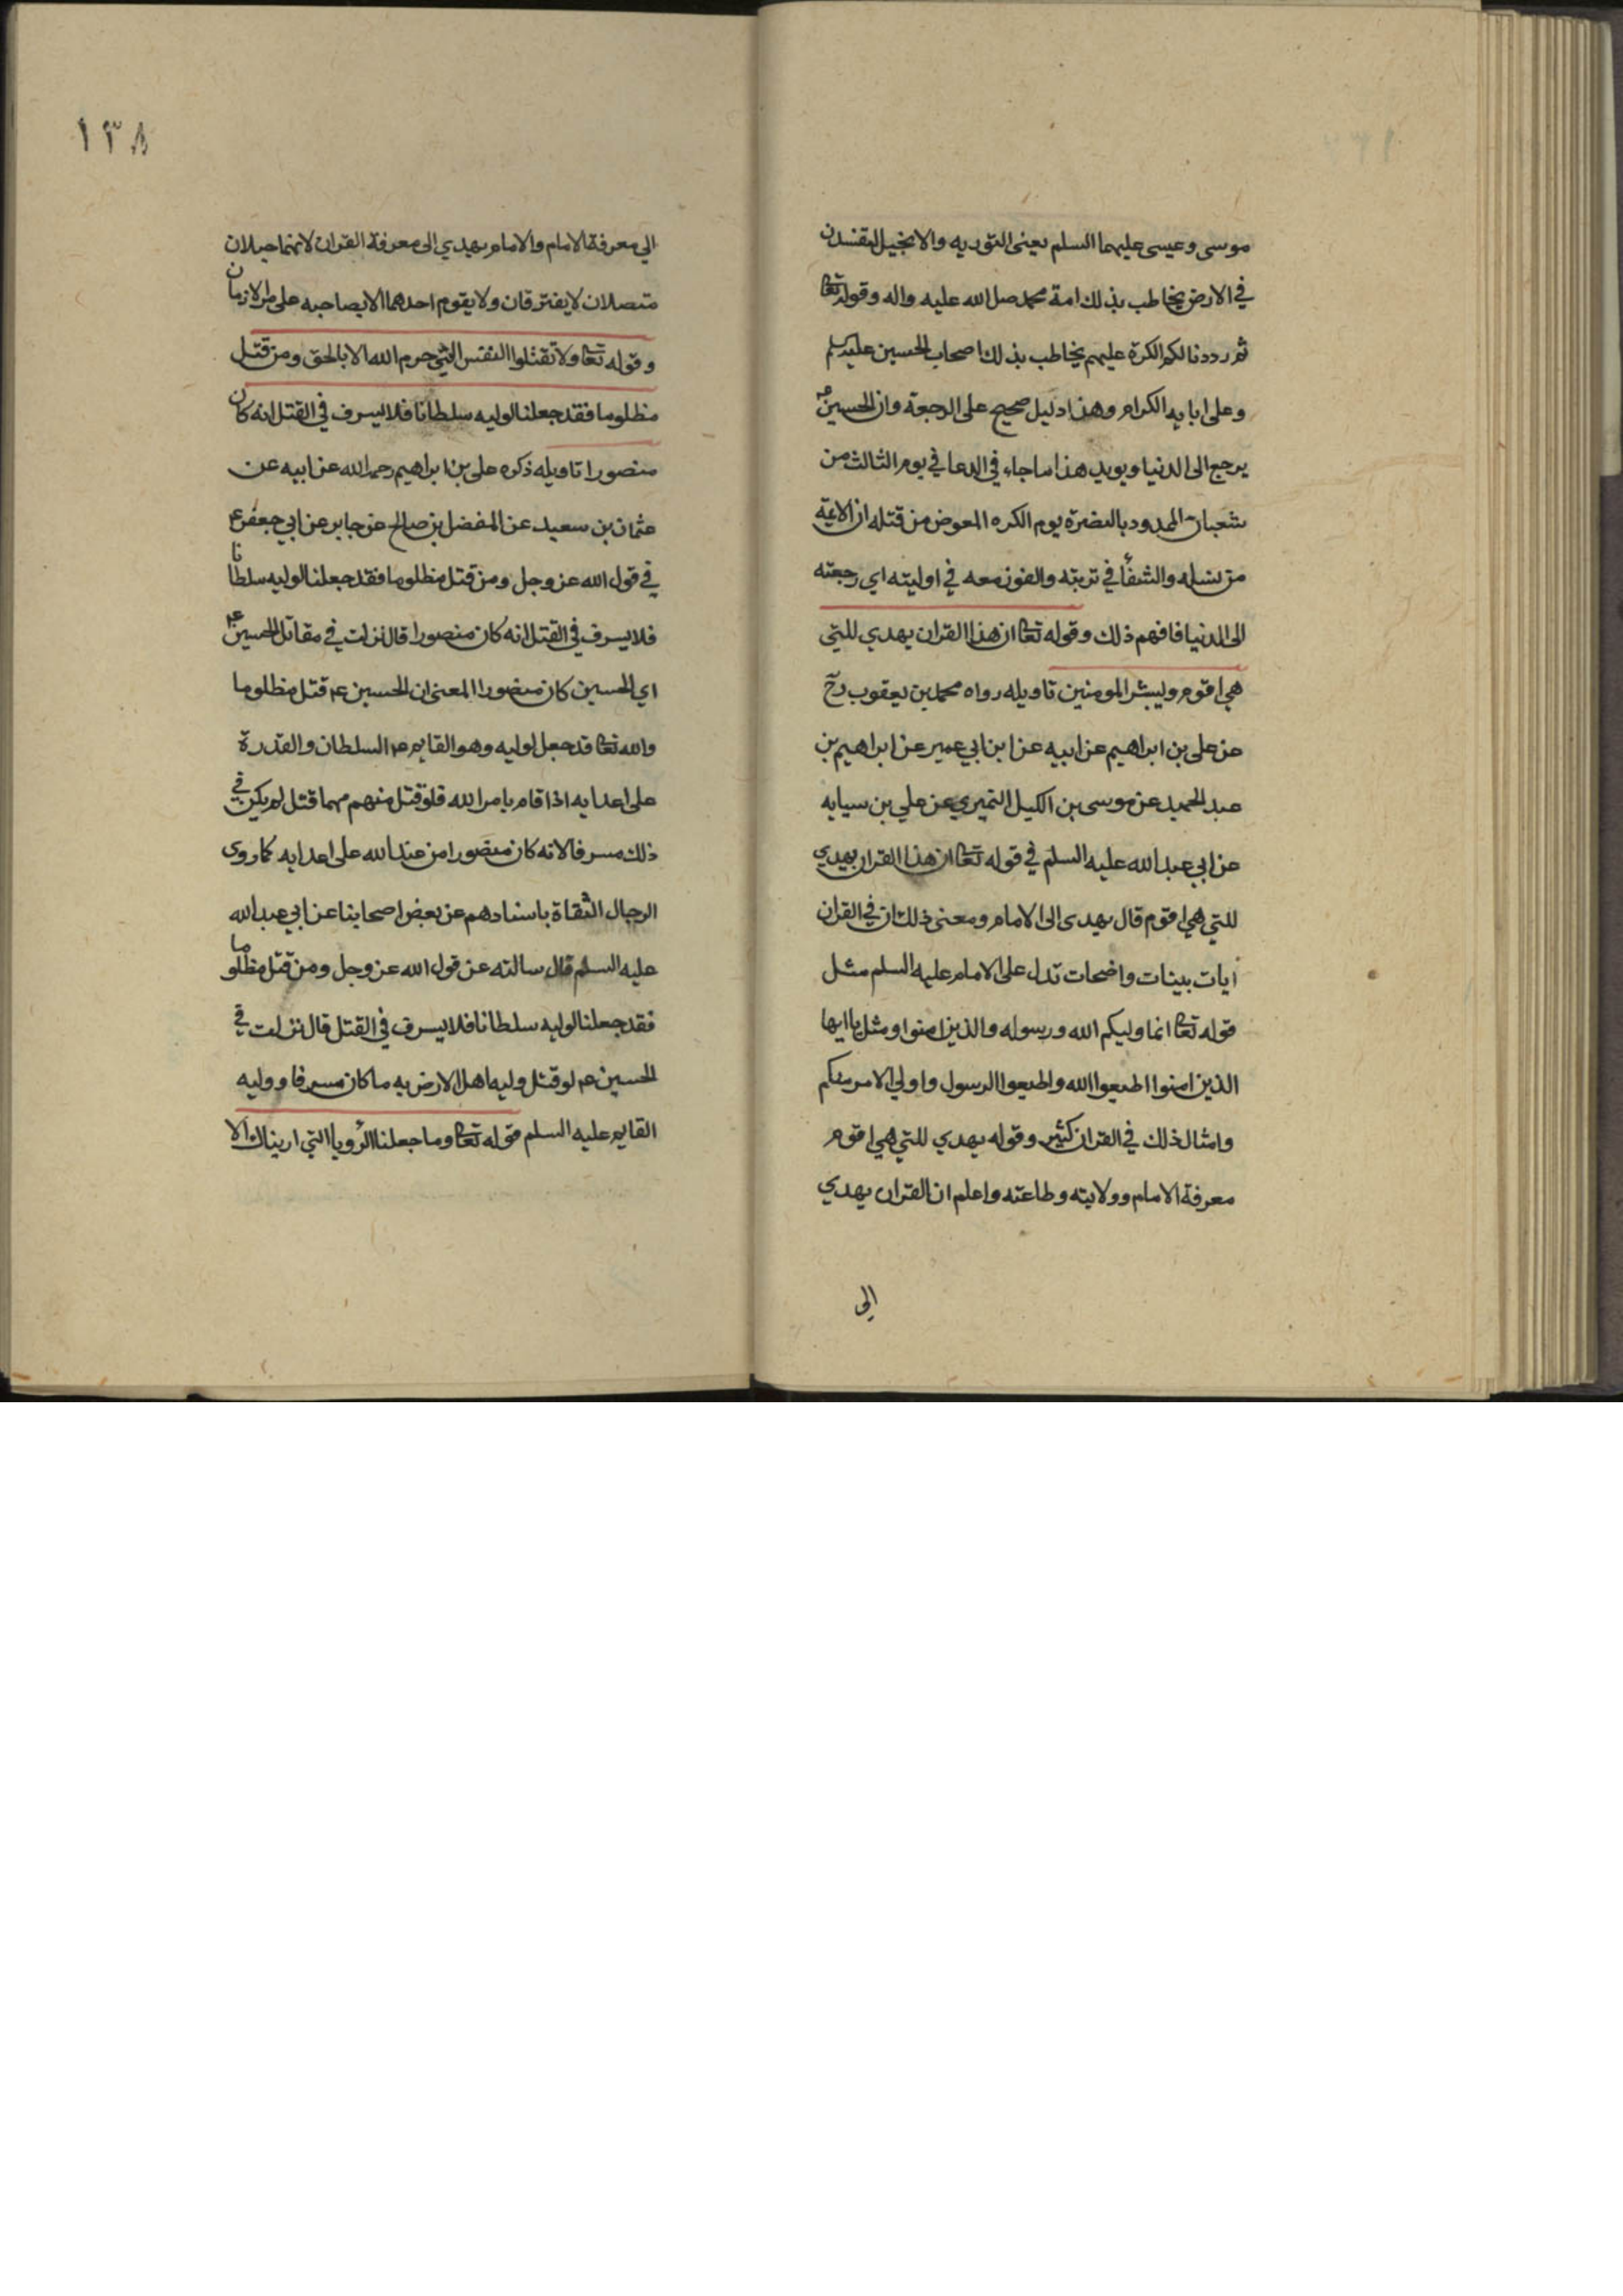 موسى وعيسى عليهما السلم يعنى التوريه والانجيل لتفسدن
في الارض يخاطب بذلك امة محمد صلى الله عليه واله وقوله تعا
ثم رددنا لكم الكرة عليهم يخاطب بذلك اصحاب الحسين عليه السلم
وعلى ابايه الكرام وهذا دليل صحيح على الرجعة وان الحسين ع
يرجع الى الدنيا ويويد هذا ما جاء في الدعا في يوم الثالث من
شعبان الممدود بالنصرة يوم الكره المعوض من قتله ان الائمة
من نسله والشفأ في تربته والفوز معه في اوليته اي رجعته
الى الدنيا فافهم ذلك وقوله تعا ان هذا القران يهدي للتي
هي اقوم ويبشر المومنين تاويله رواه محمد بن يعقوب رح
عن علي بن ابراهيم عن ابيه عن ابن ابي عمير عن ابراهيم بن
عبد الحميد عن موسى بن اكيل النميري عن علي بن سيابه
عن ابي عبد الله عليه السلم في قوله تعا ان هذا القران يهدي
للتي هي اقوم قال يهدى الى الامام ومعنى ذلك ان في القران
ايات بينات واضحات تدل على الامام عليه السلم مثل
قوله تعا انما وليكم الله ورسوله والذين امنوا ومثل يا ايها
الذين امنوا اطيعوا الله واطيعوا الرسول واولي الامر منكم
وامثال ذلك في القران كثير وقوله يهدي للتي هي اقوم
معرفة الامام وولايته وطاعته واعلم ان القران يهدي
الى
١٣٨
الي معرفة الامام والامام يهدي الى معرفة القران لانهما حبلان
متصلان لا يفترقان ولا يقوم احدهما الا بصاحبه على مر الازمان
وقوله تعا ولا تقتلوا النفس التي حرم الله الا بالحق ومن قتل
مظلوما فقد جعلنا لوليه سلطانا فلا يسرف في القتل انه كان
منصورا تاويله ذكره علي بن ابراهيم رحمه الله عن ابيه عن
عثمان بن سعيد عن المفضل بن صالح عن جابر عن ابي جعفر ع
في قول الله عز وجل ومن قتل مظلوما فقد جعلنا لوليه سلطانا
فلا يسرف في القتل انه كان منصورا قال نزلت في مقاتل الحسين ع
اي الحسين كان منصورا المعنى ان الحسين ع قتل مظلوما
والله تعا قد جعل لوليه وهو القايم ع السلطان والقدرة
على اعدايه اذا قام بامر الله فلو قتل منهم مهما قتل لم يكن في
ذلك مسرفا لانه كان منصورا من عند الله على اعدايه كما روى
الرجال الثقاة باسنادهم عن بعض اصحابنا عن ابي عبد الله
عليه السلم قال سالته عن قول الله عز وجل ومن قتل مظلوما
فقد جعلنا لوليه سلطانا فلا يسرف في القتل قال نزلت في
الحسين ع لو قتل وليه اهل الارض به ما كان مسرفا ووليه
القايم عليه السلم قوله تعا وما جعلنا الرؤيا التي اريناك الا